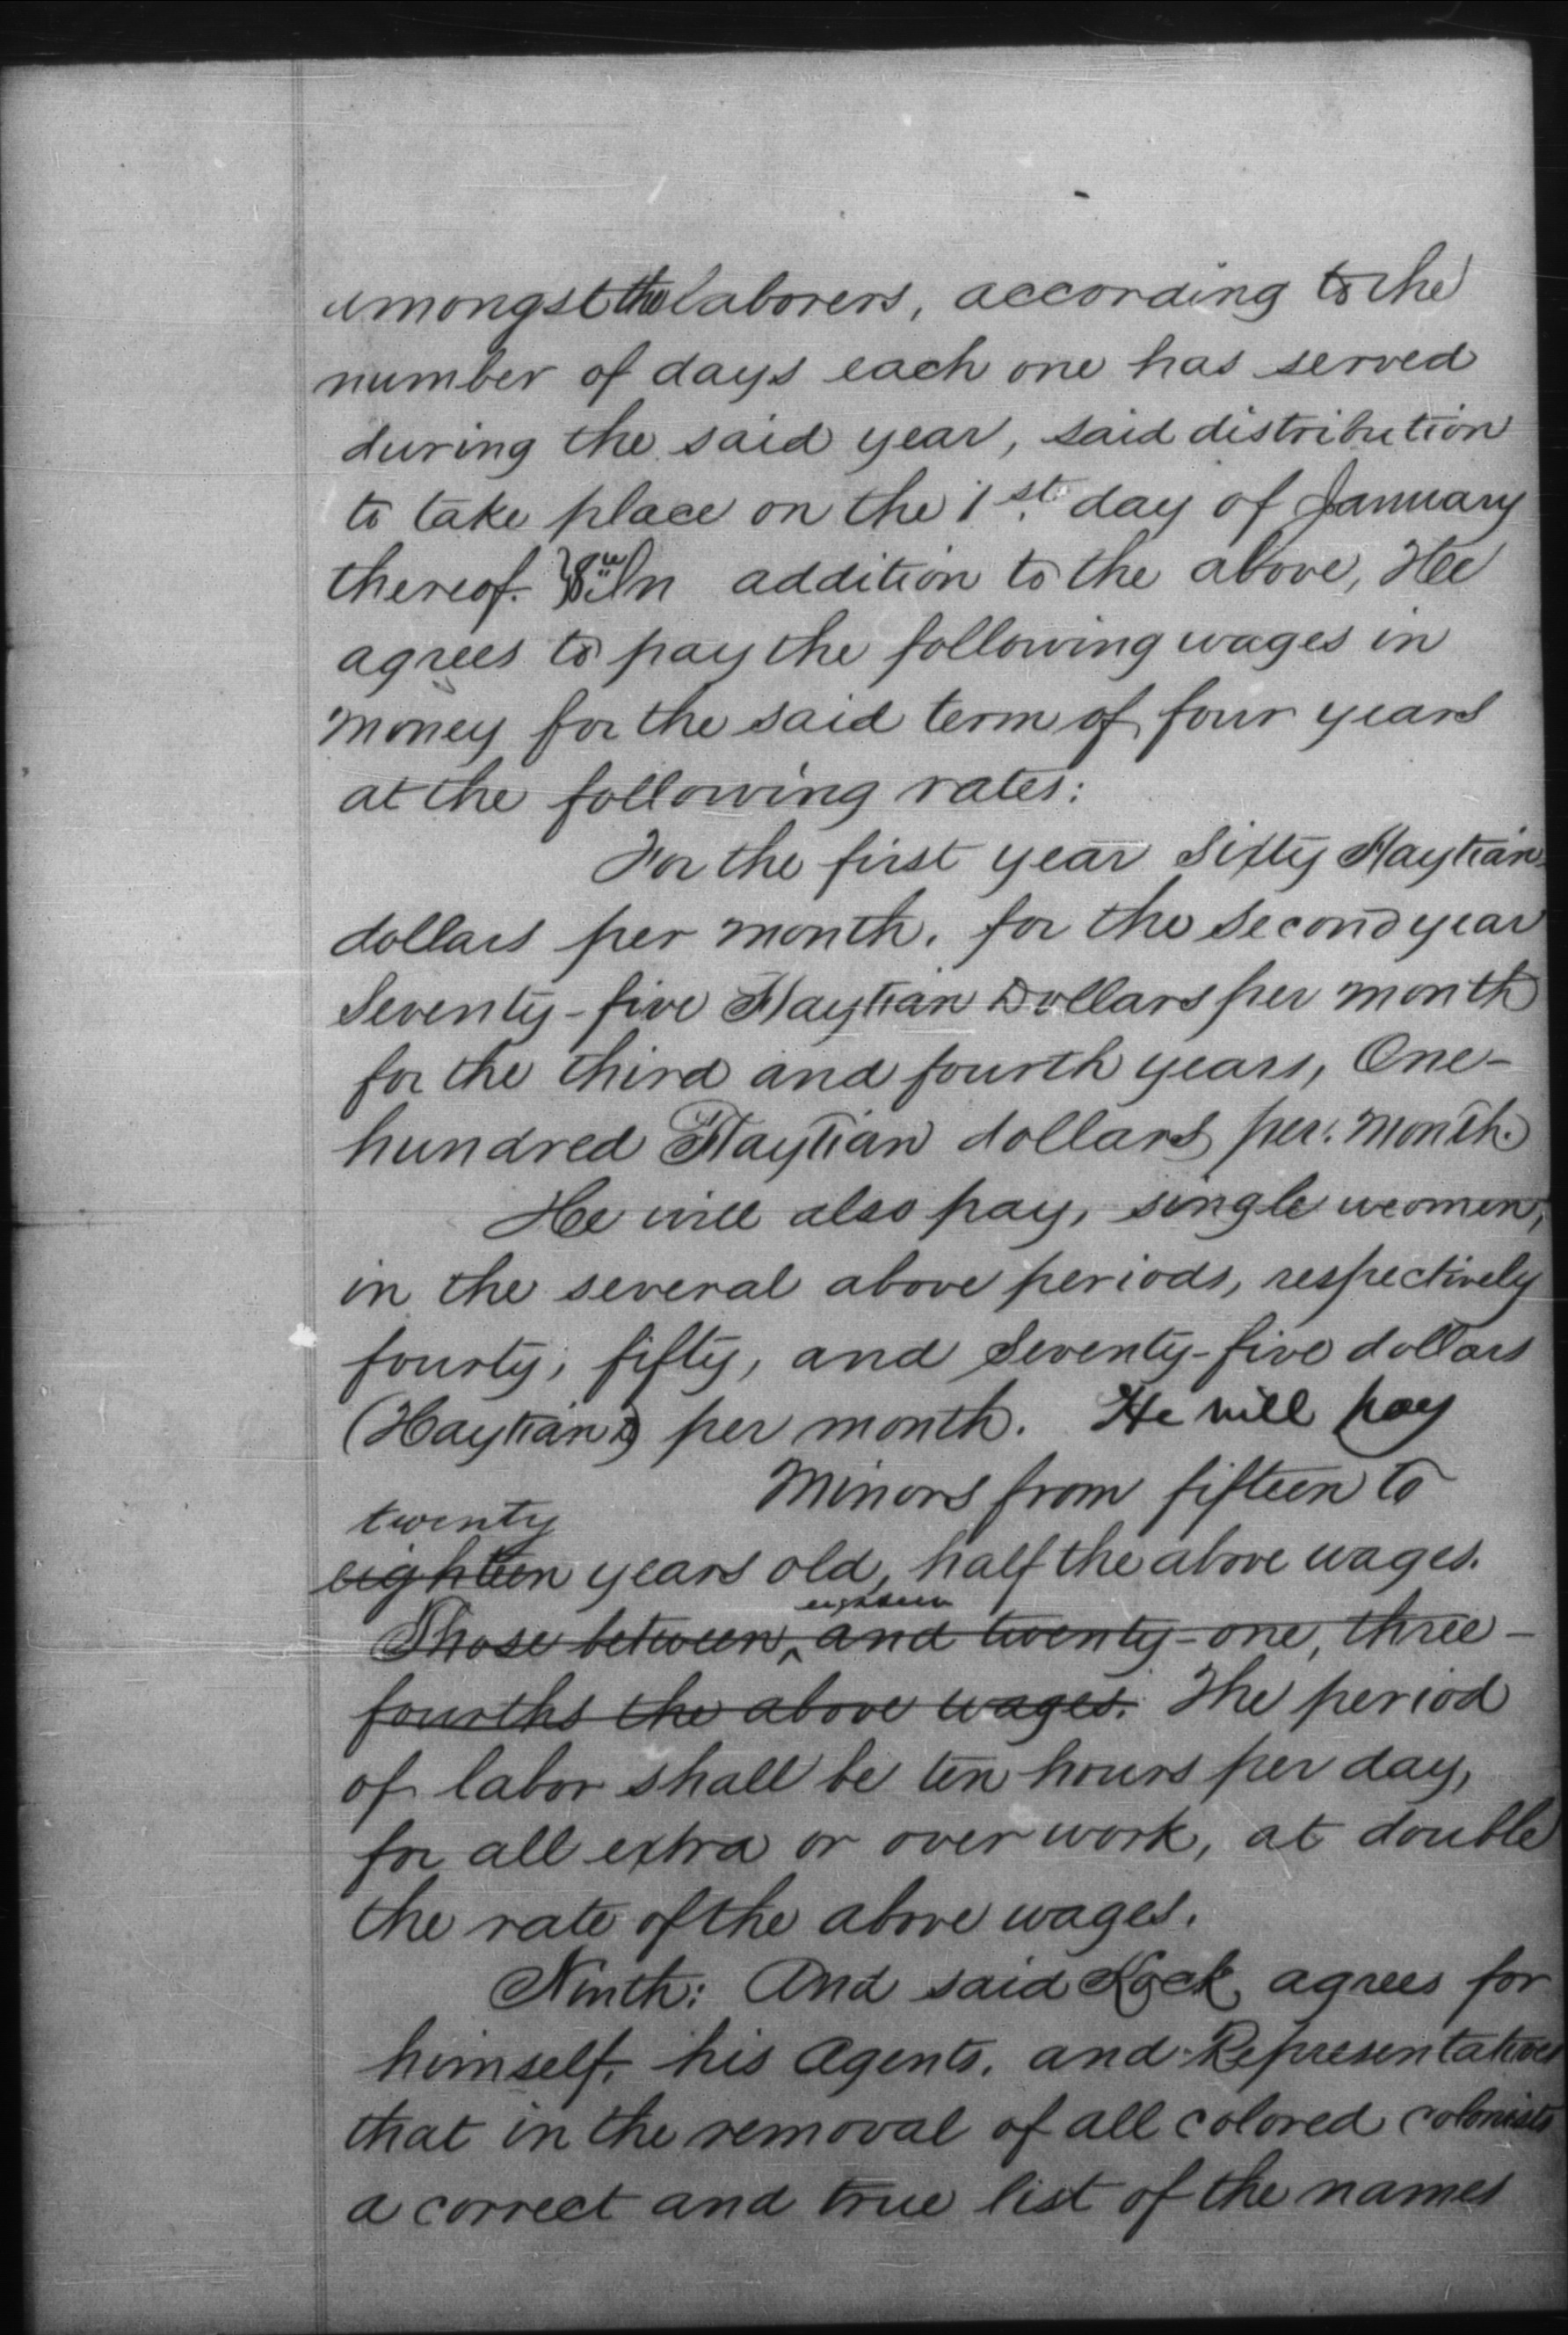 amongst the laborers, according to the
number of days each one has served
during the said year, said distribution
to take place on the 1st day of January
thereof. In addition to the above, He
agrees to pay the following wages in
money for the said term of four years
at the following rates:
For the first year Sixty Haytian
dollars per month. for the second year
Seventy-five Haytian Dollars per month
for the third and fourth years, One-
hundred Haytian dollars per. month.
He will also pay, single women,
in the several above periods, respectively
fourty, fifty, and Seventy-five dollars
(Haytian) per month. He will pay
Minors from fifteen to
twenty
eighteen years old, half the above wages.
eighteen
Those between ^ and twenty-one, three-
fourths the above wages. The period
of labor shall be ten hours per day,
for all extra or over work, at double
the rate of the above wages.
Ninth: And said Kock agrees for
himself, his Agents, and Representatives
that in the removal of all colored colonists
a correct and true list of the names